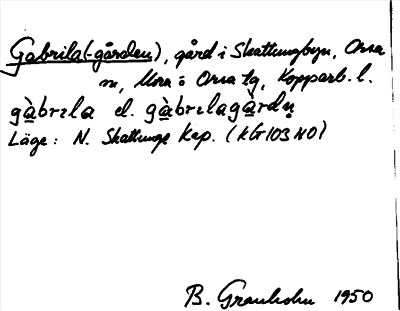 Gabrila(-gården), gård i Skattungbyn, Orsa
sn, Mora o Orsa tg, Kopparb. l.
gàbrɪla el. gàbrɪlagàrdn̥
Läge: N. Skattunge Kap. (KG103 HO)
B. Granholm 1950